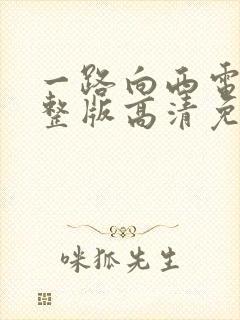 一路向西电
整版高清免
咪狐先生